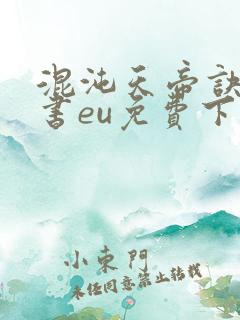 混沌天帝訣
書eu免費下
小東門
未經同意禁止轉載